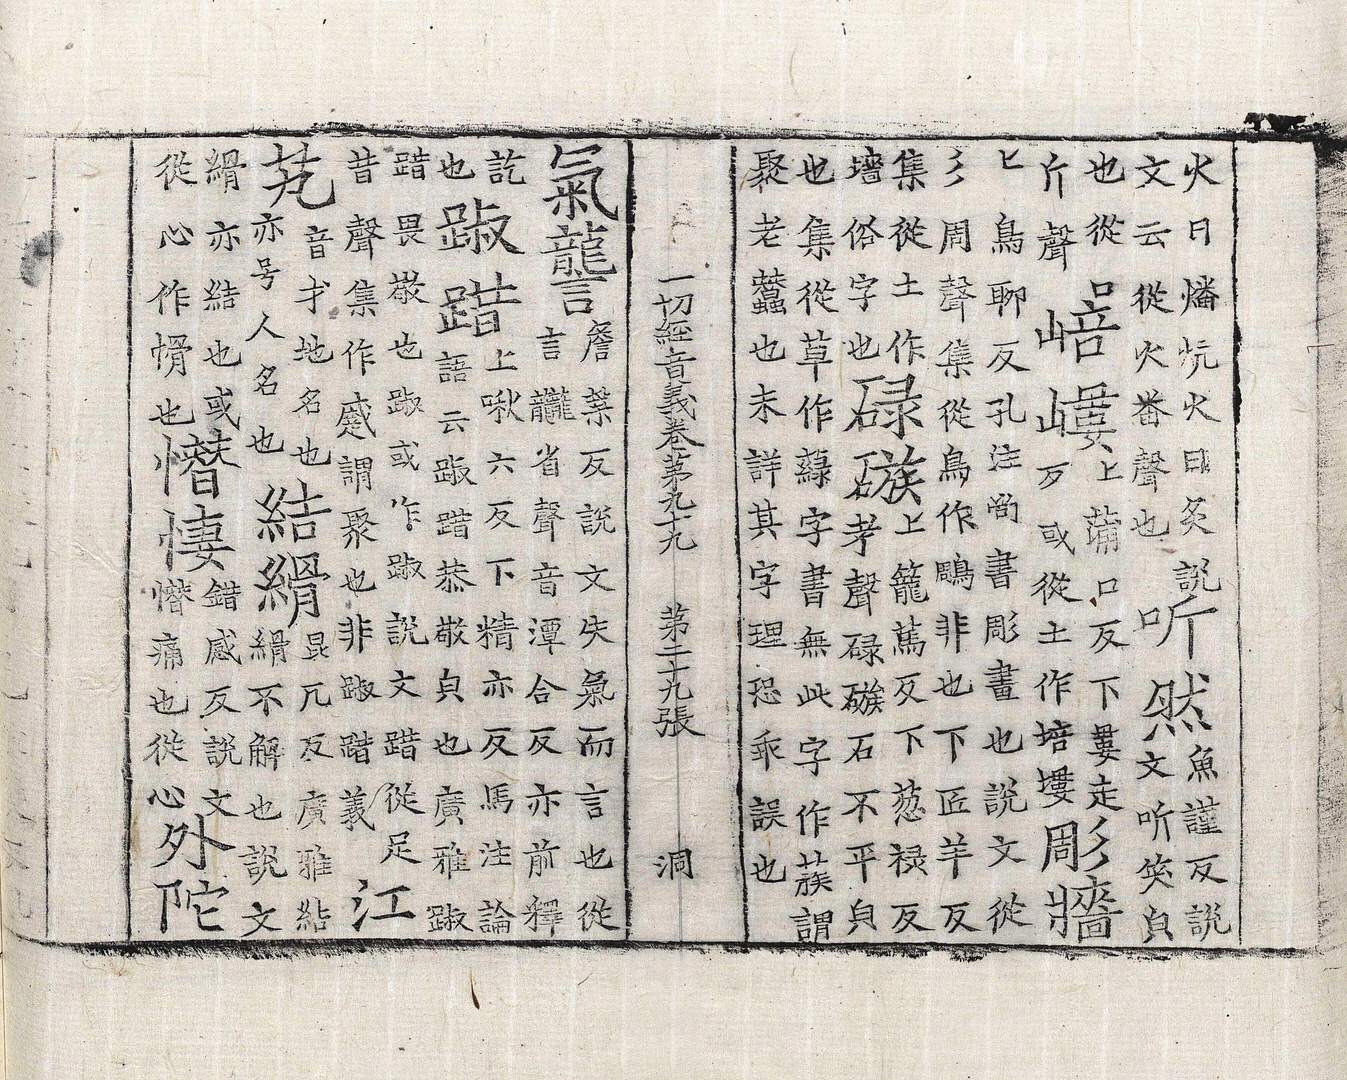 火曰燔炕火曰炙說
文云從火番聲也
听然
魚謹反說
文听笑皃
也從口
㟝嶁
上蔀口反下婁走
斤聲
反或從土作培塿
彫牆
上鳥聊反孔注尚書彫畫也說文從
彡周聲集從鳥作鵰非也下匠羊反
集從土作
墻俗字也
碌磩
上籠篤反下葱祿反
考聲碌磩石不平皃
也集從草作䔁字書無此字作蔟謂
聚老蠶也未詳其字理恐乖誤也
一切經音義卷第九十九 第二十九張 洞
氣讋
詹葉反說文失氣而言也從
言龖省聲音潭合反亦前釋
訖
也
踧踖
上啾六反下精亦反馬注論
語云踧踖恭敬皃也廣雅踧
踖畏敬也踧或作踧說文踖從足
昔聲集作蹙謂聚也非踧踖義
江
艽
音才地名也
亦号人名也
結縎
昆兀反廣雅結
縎不解也說文
縎亦結也或
從心作愲也
憯悽
錯感反說文
憯痛也從心
外陀